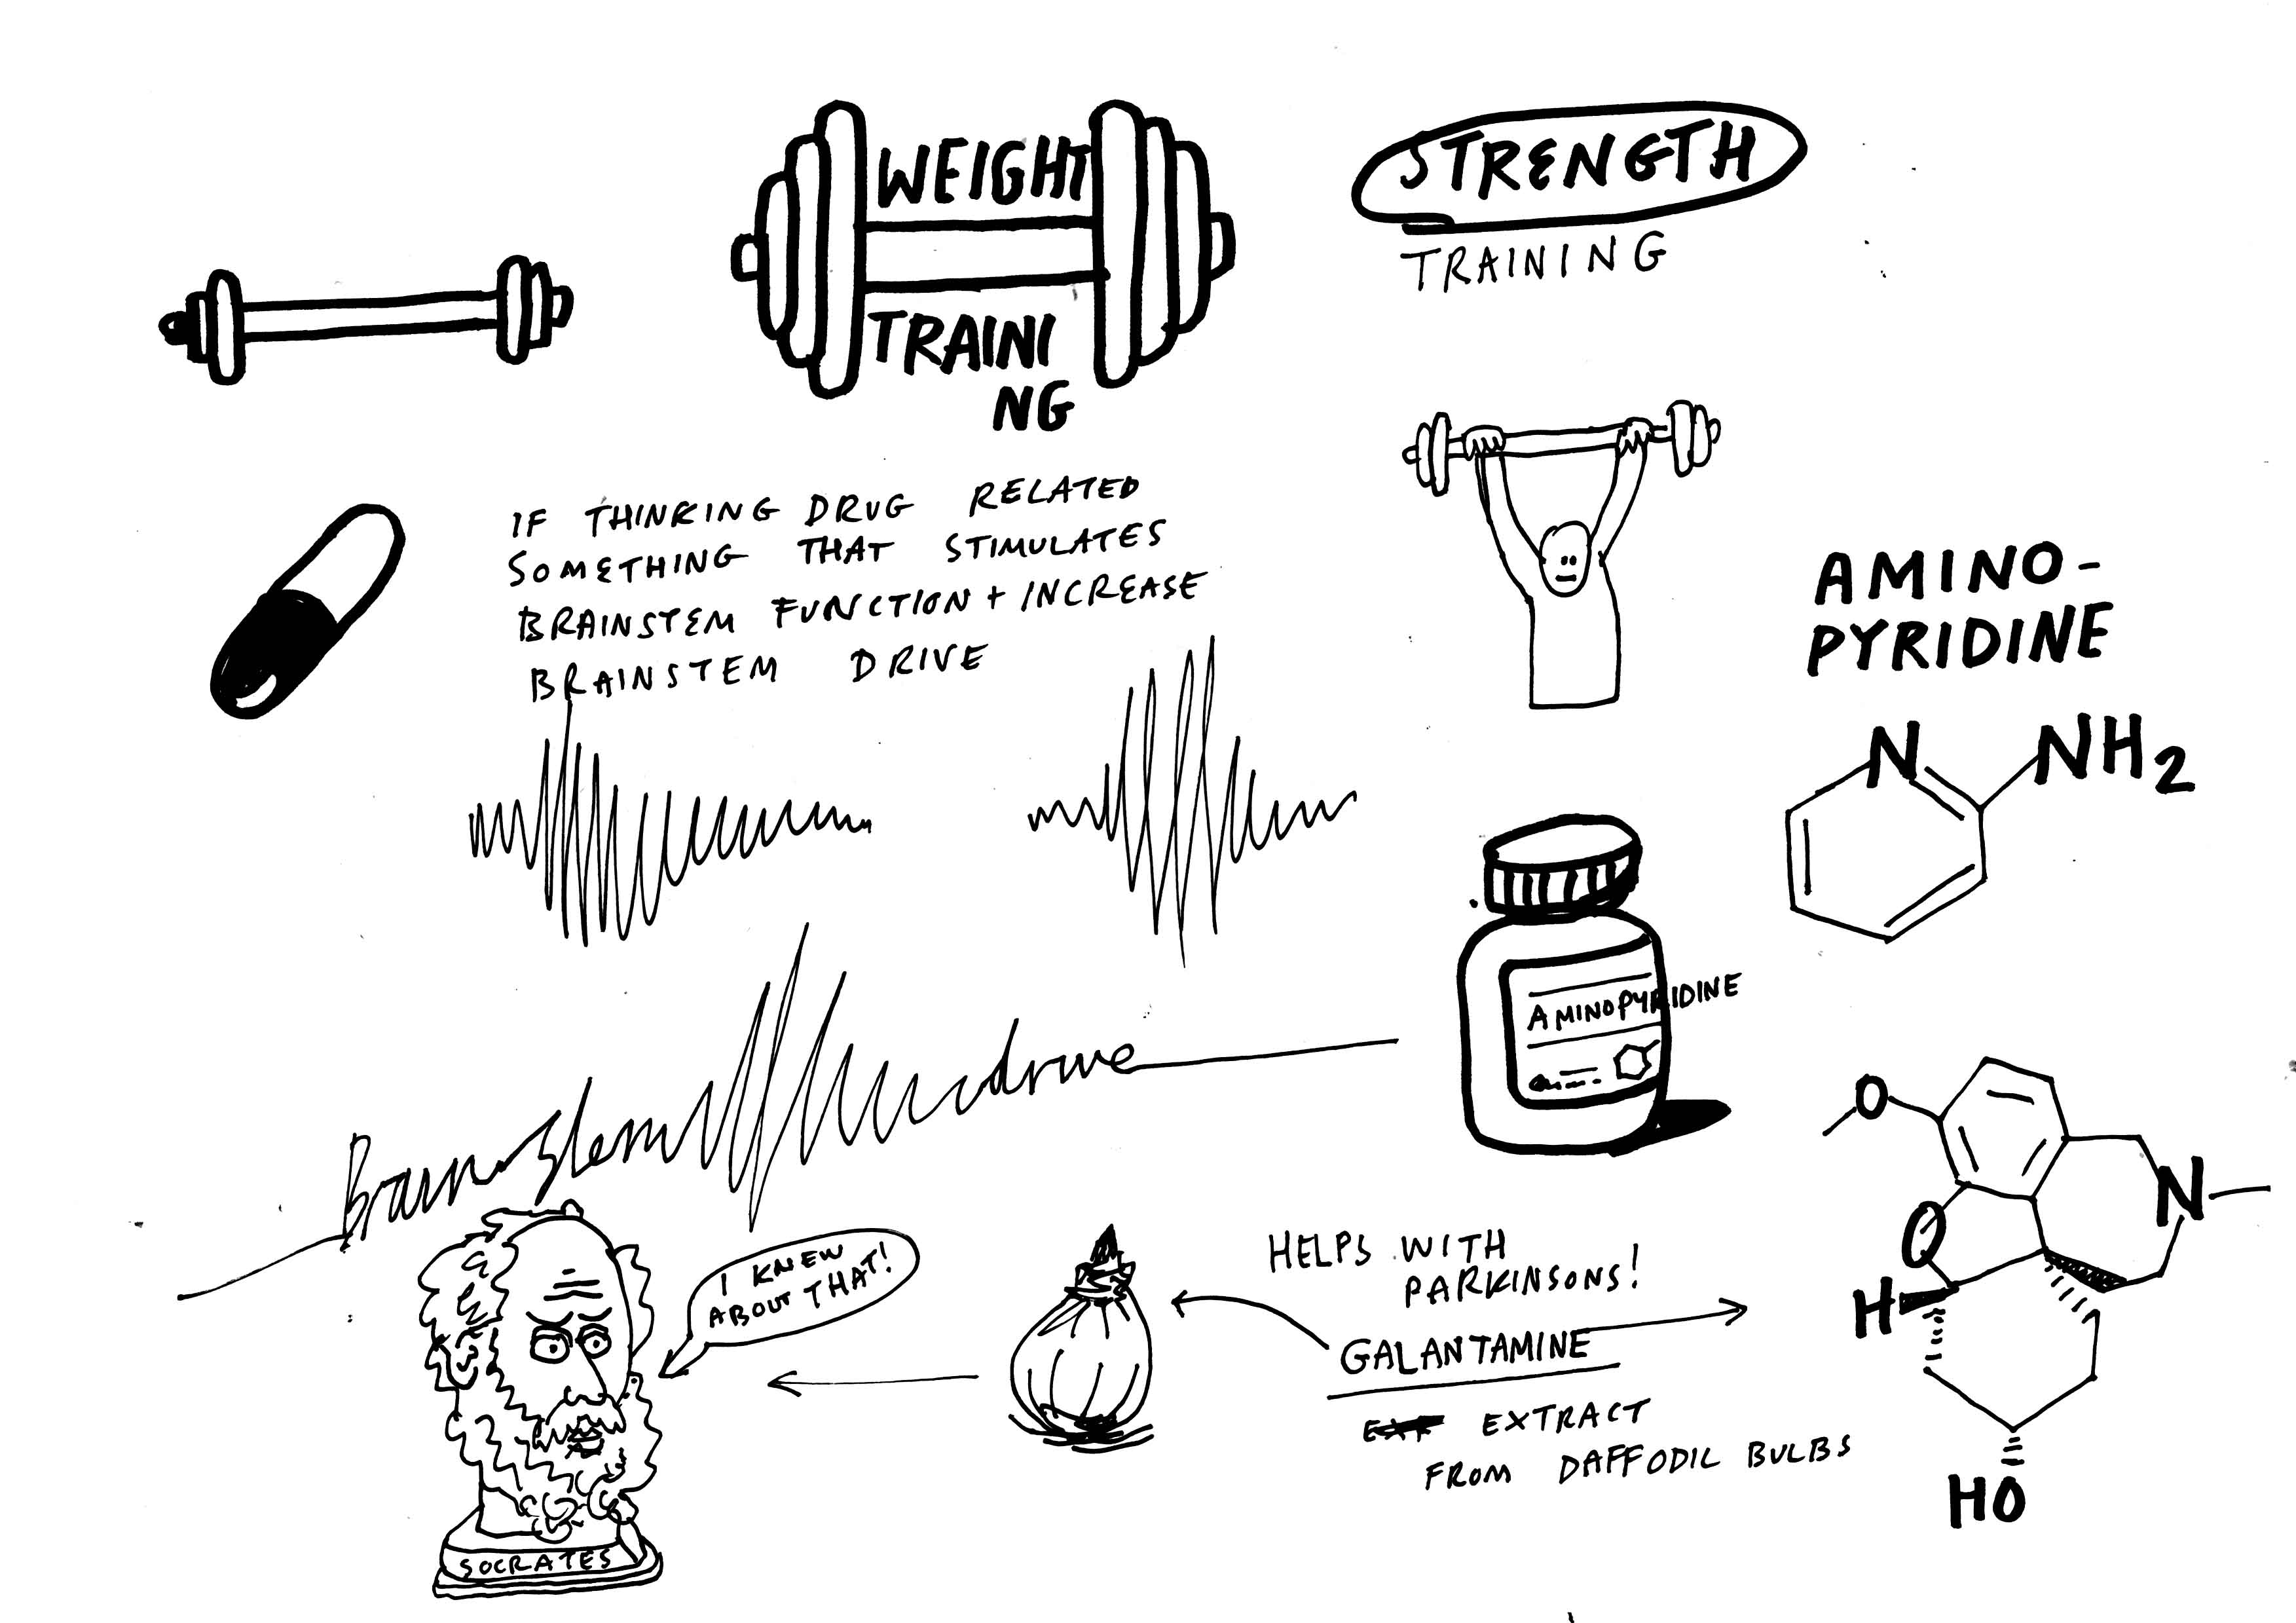 WEIGHT
TRAINI
NG
STRENGTH
TRAINING
IF THINKING DRUG RELATED
SOMETHING THAT STIMULATES
BRAINSTEM FUNCTION + INCREASE
BRAINSTEM DRIVE
AMINO-
PYRIDINE
N
NH2
AMINOPYRIDINE
brainstem drive
O
N
O
H
HO
I KNEW
ABOUT THAT!
HELPS WITH
PARKINSONS!
GALANTAMINE
EXTRACT
FROM DAFFODIL BULBS
SOCRATES